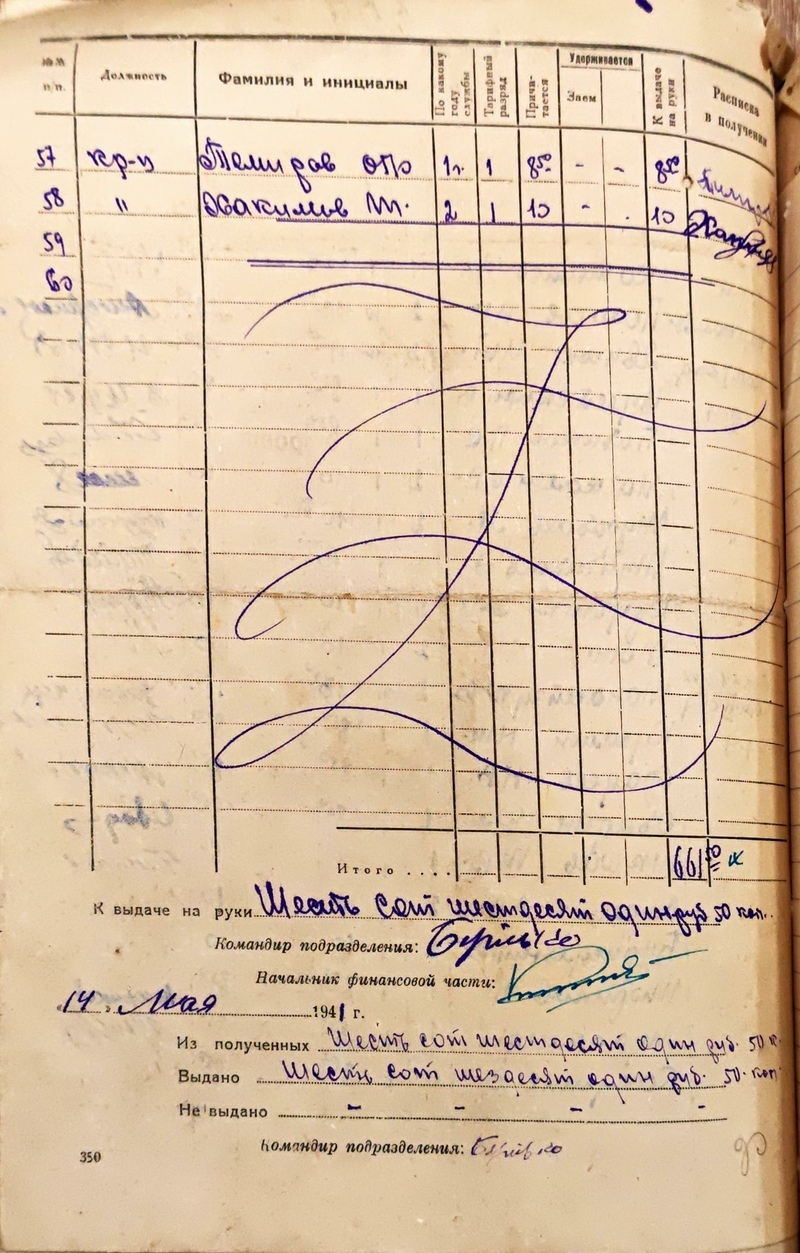 №№ п.п. Должность Фамилия и инициалы По какому году службы Тарифный разряд Причитается Удерживается Заем К выдаче на руки Расписка в получении
57 кр-ц 1 г. 1 8 50 - - 8 50
58 " Хакимов Ш. 2 1 10 - . 10
59
60
Итого .... 661 50
К выдаче на руки Шесть сот шестдесят один руб 50 коп.
Командир подразделения:
Начальник финансовой части:
"14" Мая 1941 г.
Из полученных Шесть сот шестдесят один руб. 50 к
Выдано Шесть сот один руб. 50 коп
Не выдано - - - -
Командир подразделения:
350